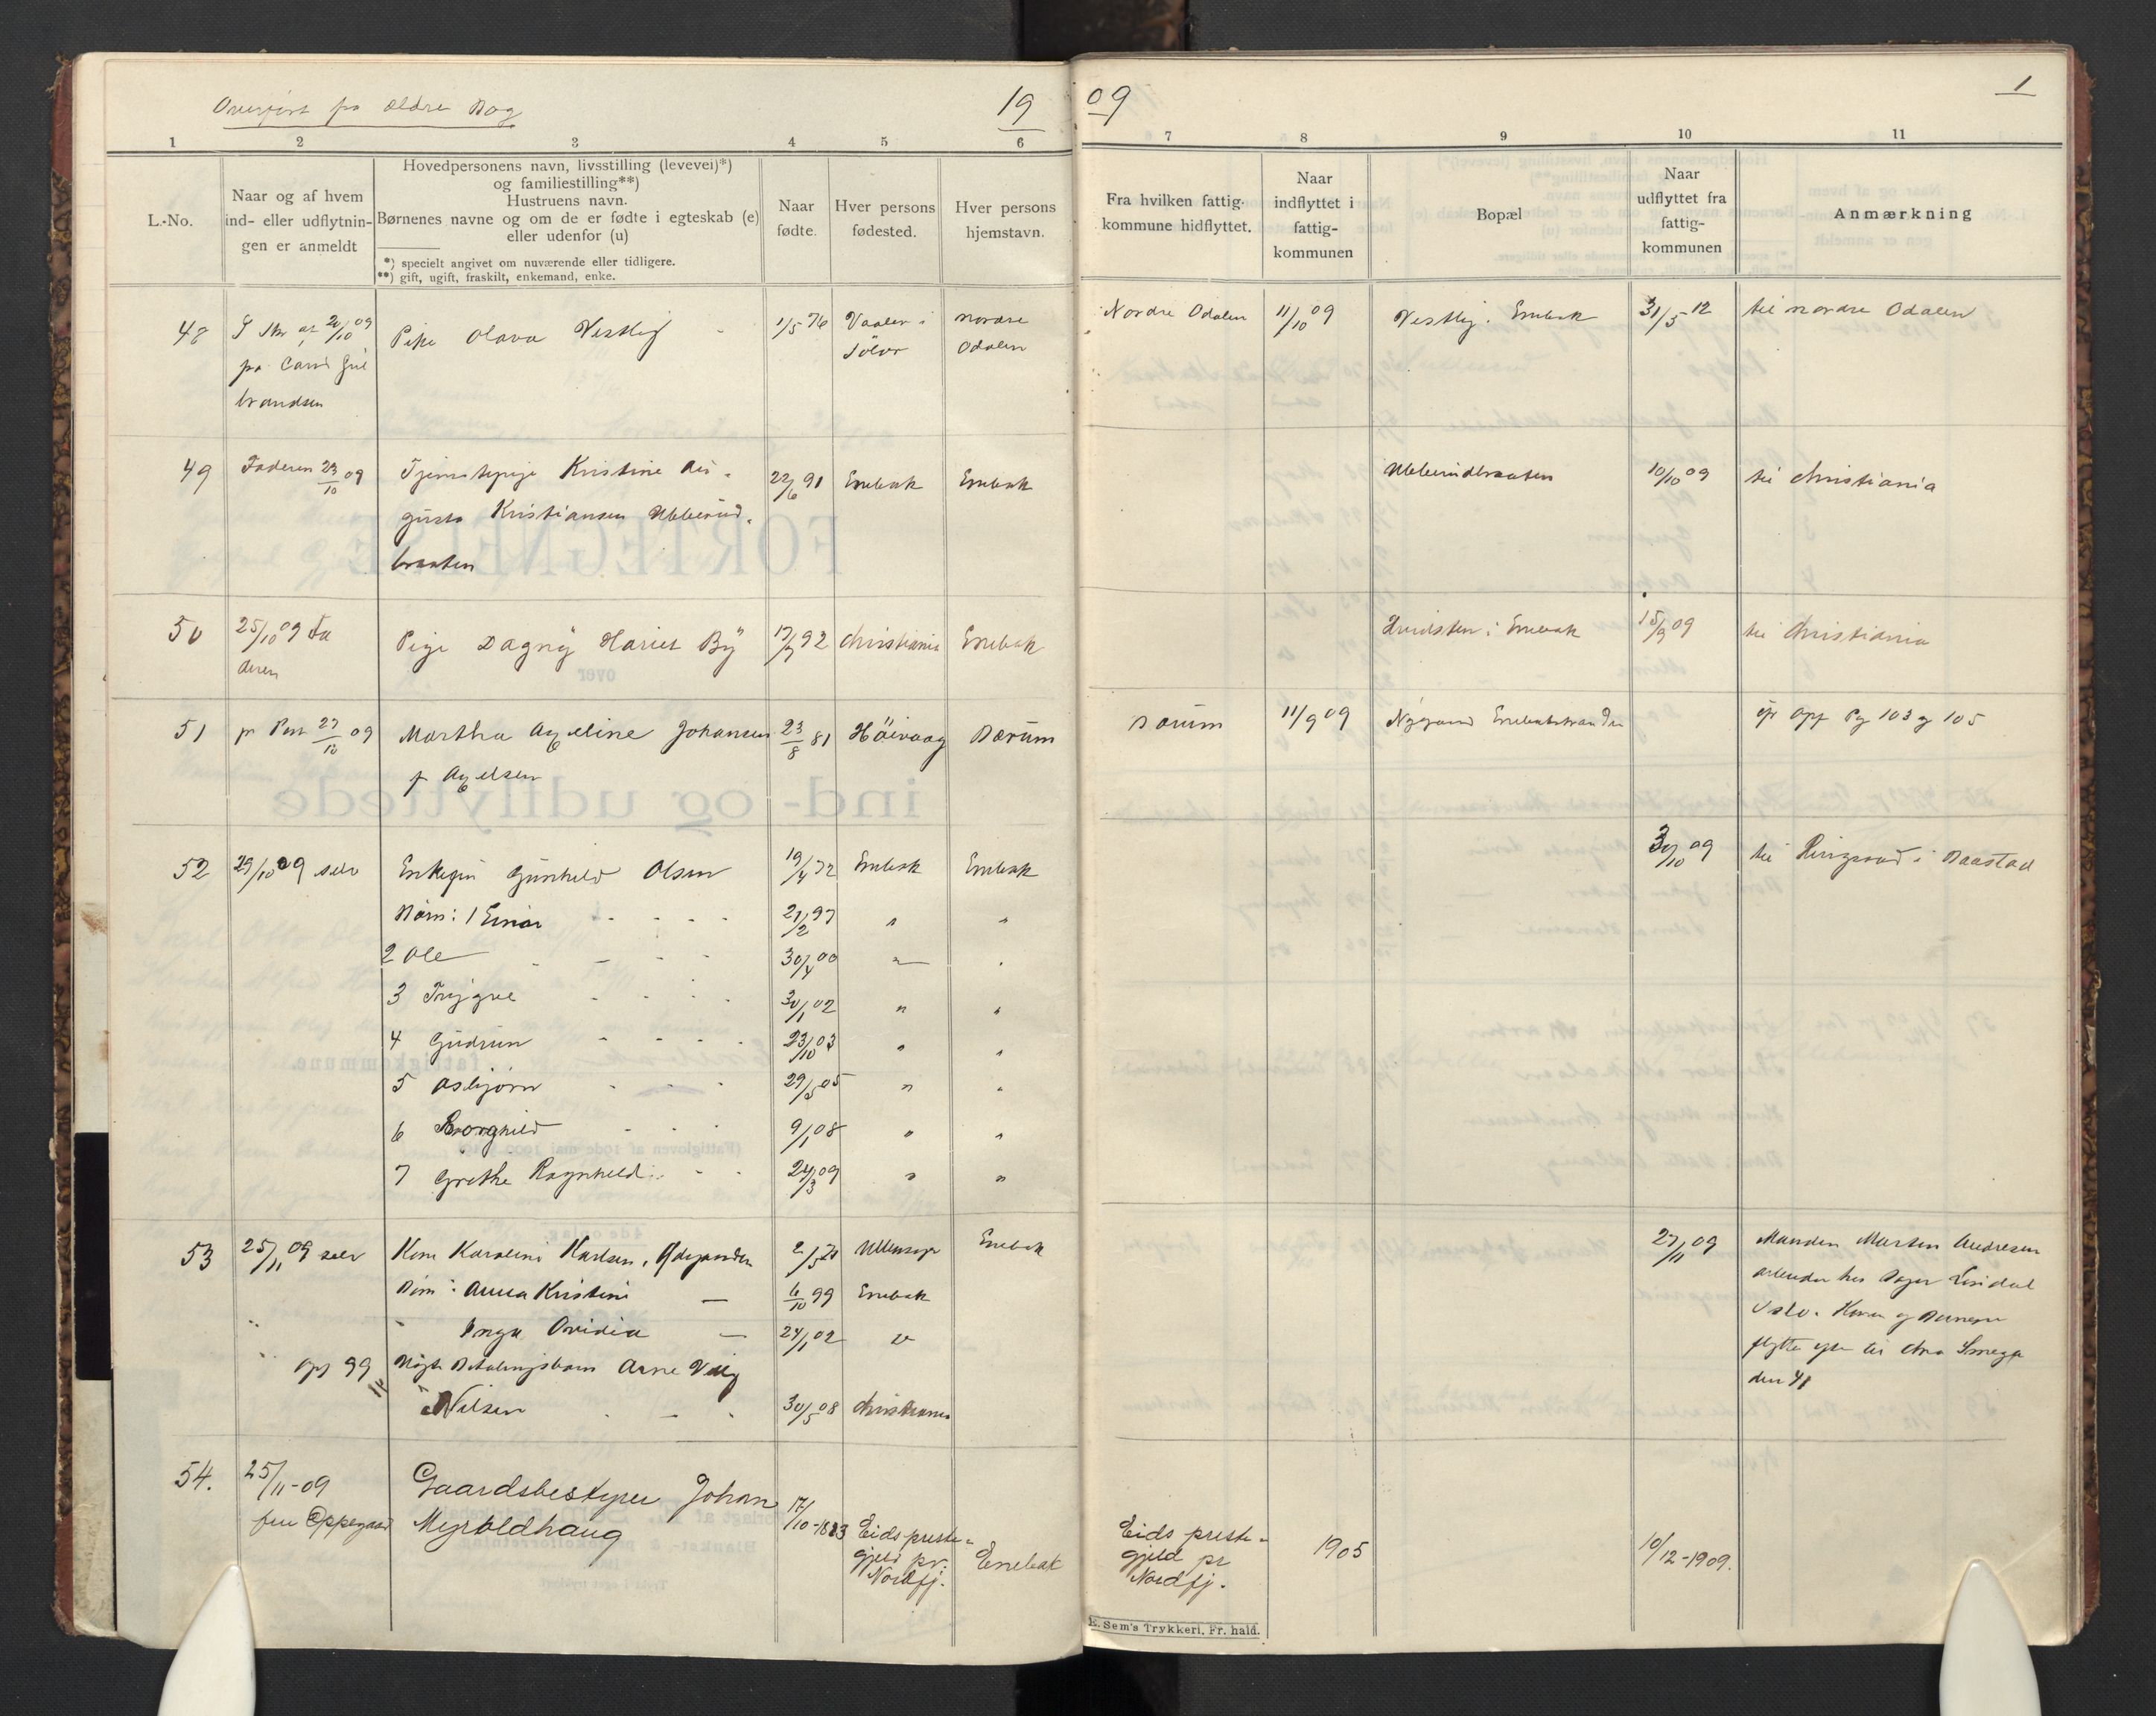 Overført fra ældre Bog
19
09
1
1 2 3 4 5 6
7 8 9 10 11
L.-No.
Naar og af hvem
ind- eller udflytnin-
gen er anmeldt
Hovedpersonens navn, livsstilling (levevei)*)
og familiestilling**)
Hustruens navn.
Børnenes navne og om de er fødte i egteskab (e)
eller udenfor (u)
*) specielt angivet om nuværende eller tidligere.
**) gift, ugift, fraskilt, enkemand, enke.
Naar
fødte.
Hver persons
fødested.
Hver persons
hjemstavn.
Fra hvilken fattig-
kommune hidflyttet.
Naar
indflyttet i
fattig-
kommunen
Bopæl
Naar
udflyttet fra
fattig-
kommunen
Anmærkning
48
20/10 09
brandsen
Pike Olava Vestlig
1/5 76
Vaaler i
Solør
Nordre
Odalen
Nordre Odalen
11/10 09
Vestlig i Enebak
31/5 12
til nordre Odalen
49
Faderen 23/10 09
Tjenestepige Kristine Au-
gusta Kristiansen Ubberud-
braaten
22/6 91
Enebak
Enebak
Ubberudbraaten
10/10 09
til Christiania
50
25/10 09 Fa
deren
Pige Dagny Hariet By
17/7 92
Christiania
Enebak
i Enebak
15/9 09
til Christiania
51
pr Post 27/10 09
Martha Axeline Johansen
f Axelsen
23/8 81
Høivaag
Bærum
Bærum
11/9 09
Nygaard Enebakstranden
opf Pg 103 og 105
52
29/10 09 selv
Enkefru Gunhild Olsen
19/4 72
Enebak
Enebak
30/10 09
til Ringerud i Baastad
Børn: 1 Einar
21/2 97
"
"
2 Ole
30/4 00
"
"
3 Trygve
30/1 02
"
"
4 Gudrun
23/10 03
"
"
5 Asbjørn
29/5 05
"
"
6 Borghild
9/1 08
"
"
7 Grethe Ragnhild
24/3 09
"
"
53
25/11 09 selv
Kone Karoline Karlsen, Ødegaarden
Ullensaker
Enebak
27/11 09
Manden Morten Andresen
arbeider hos Bager
Oslo. Konen og Børnene
flytte
den
Børn: Anna Kristine
6/10 99
Enebak
Inga Ovidia
24/1 02
"
opf 99
Betalingsbarn Arne
Nilsen
30/5 08
Christiania
54.
25/11-09
fra Oppegaard
Gaardsbestyrer Johan
Myroldhaug
17/10-1883
Eids preste-
gjeld pr.
Nordfj.
Enebak
Eids preste-
gjeld pr
Nordfj.
1905
10/12-1909.
E. Sem's Trykkeri, Fr. hald.